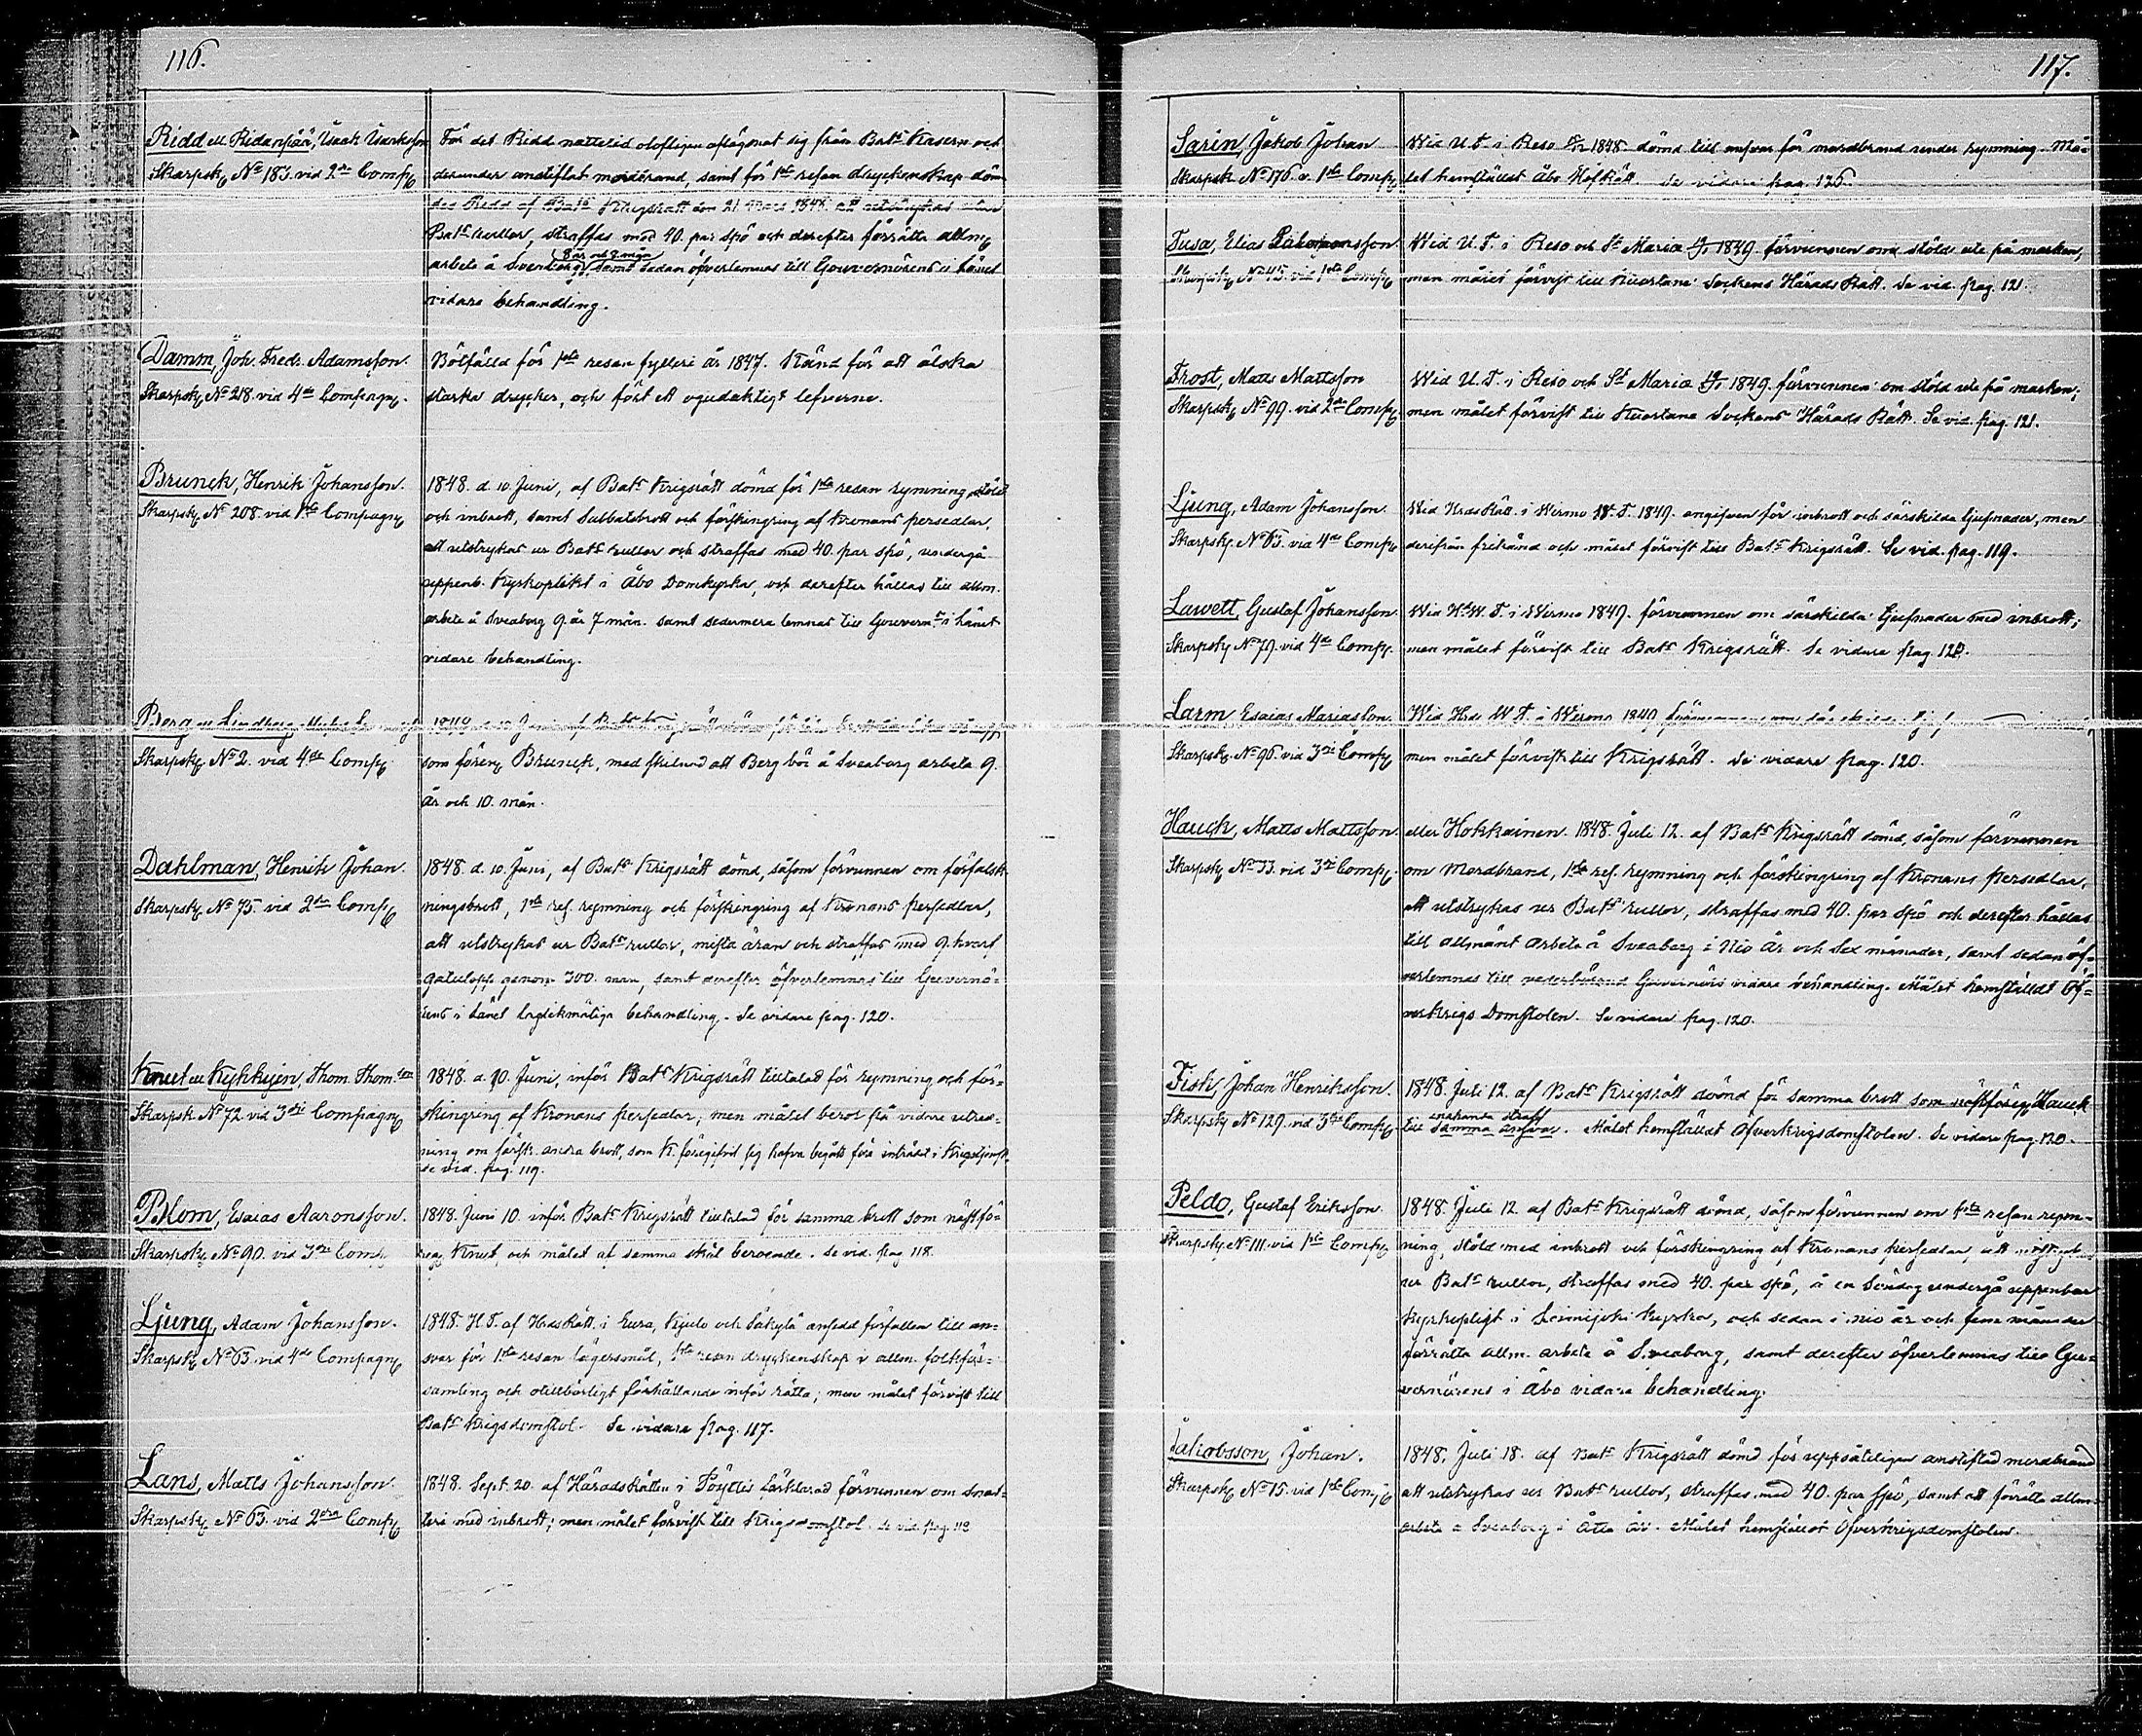 116.
Ridd ell Ridanpää, Isaak Isaksson
Skarpsk. No 183. vid 2dra Comp.
För det Ridd nattetid olofligen aflägsnat sig från Bats Kasern och
derunder anstiftat mordbrand, samt för 1sta resan dryckenskap döm-
des Ridd af Bats Krigsrätt den 21 Mars 1848. att utstrykas utur
Bats rullor, straffas med 40. par spö och derefter förrätta allm.
arbete å Sveaborg 8 år och 8 mån. samt sedan öfverlemnas till Gouvernörens i länet
vidare behandling.
Damm, Joh. Fredr. Adamsson.
Skarpsk. No 218. vid 4de Compagn.
Bötfälld för 1sta resan fylleri år 1847. Känd för att älska
starka drycker, och fört ett ogudaktigt lefverne.
Brunck, Henrik Johansson.
Skarpsk. No 208. vid 1sta Compagn.
1848. d. 10. Juni, af Bats Krigsrätt dömd för 1sta resan rymning, stöld
och inbrott, samt Sabbatsbrott och förskingring af Kronans persedlar,
att utstrykas ur Bats rullor och straffas med 40. par spö, undergå
uppenb. Kyrkoplikt i Åbo Domkyrka, och derefter hållas till allm.
arbete å Sveaborg 9. år 7 mån. samt sedermera lemnas till Gouvern:s i länet
vidare behandling.
Berg ell Lindberg,
Skarpsk. No 2. vid 4de Comp.
1848 d. 10 Juni af Bats
som föreg. Brunck, med skilnad att Berg bör å Sveaborg arbeta 9.
år och 10. mån.
Dahlman, Henrik Johan.
Skarpsk. No 75. vid 2dra Comp.
1848. d. 10. Juni, af Bats Krigsrätt dömd, såsom förvunnen om förfalsk-
ningsbrott, 1sta res. rymning och förskingring af Kronans persedlar,
att utstrykas ur Bats rullor, mista äran och straffas med 9. hvarf
gatulopp genom 300. man, samt derefter öfverlemnas till Guvernö-
rens i länet laglikmätiga behandling. Se vidare pag. 120.
Knut ell Kykkyjen, Thom. Thom.son
Skarpsk. No 72. vid 3dje Compagn.
1848. d. 10. Juni, inför Bats Krigsrätt tilltalad för rymning och för-
skingring af Kronans persedlar; men målet beror på vidare utred-
ning om särsk. andra brott, som K. föregifvit sig hafva begått före inträdet i Krigstjenst.
Se vid. pag. 119.
Blom, Esaias Aaronsson.
Skarpsk. No 90. vid 3dje Comp.
1848. Juni 10. inför Bats Krigsrätt tilltalad för samma brott som nästfö-
reg. Knut, och målet af samma skäl beroende. Se vid. pag. 118.
Ljung, Adam Johansson.
Skarpsk. No 63. vid 4de Compagn.
1848. H. T. af Hds Rätt. i Eura, Kjulo och Säkylä ansedd förfallen till an-
svar för 1sta resan lägersmål, 1sta resan dryckenskap i allm. folkför-
samling och otillbörligt förhållande inför rätta; men målet förvist till
Bats Krigsdomstol. Se vidare pag. 117.
Lans, Matts Johansson.
Skarpsk. No 63. vid 2dra Comp.
1848. Sept. 20. af Häradsrätten i Pöyttis förklarad förvunnen om snat-
teri med inbrott; men målet förvist till Krigsdomstol. Se vid. pag. 118
117.
Sarin, Jakob Johan
Skarpsk. No 176. v. 1sta Comp.
Wid U. T. i Reso 1848. dömd till ansvar för mordbrand under rymning. Må-
let hemställdt Åbo Hofrätt. Se vidare pag. 126.
Tusa, Elias
Skarpsk. No 45. vid 1sta Comp.
Wid U. T. i Reso och St Mariæ 1849. förvunnen om stöld ute på marken,
men målet förvist till Kuortane Sockens Härads Rätt. Se vid. pag. 121.
Frost, Matts Mattsson
Skarpsk. No 99. vid 2dra Comp.
Wid U. T. i Reso och St Mariæ 1849. förvunnen om stöld ute på marken;
men målet förvist till Kuortane Sockens Härads Rätt. Se vid. pag. 121.
Ljung, Adam Johansson.
Skarpsk. No 63. vid 4de Comp.
Wid Hrds Rätt. i Wirmo W. T. 1849. angifven för inbrott och särskilda tjufnader, men
derifrån frikänd och målet förvist till Bats Krigsrätt. Se vid. pag. 119.
Lawett, Gustaf Johansson.
Skarpsk. No 79. vid 4de Comp.
Wid Hds W. T. i Wirmo 1849. förvunnen om särskilda tjufnader med inbrott;
men målet förvist till Bats Krigsrätt. Se vidare pag. 120.
Larm, Esaias Mariasson.
Skarpsk. No 96. vid 3dje Comp.
Wid Hrds W. T. i Wirmo 1849
men målet förvist till Krigsrätt. Se vidare pag. 120.
Hauck, Matts Mattsson.
Skarpsk. No 33. vid 3dje Comp.
eller Hokkainen. 1848. Juli 12. af Bats Krigsrätt dömd, såsom förvunnen
om Mordbrand, 1sta res. rymning och förskingring af Kronans persedlar,
att utstrykas ur Bats rullor, straffas med 40. par spö och derefter hållas
till allmänt arbete å Sveaborg i Nio år och Sex månader, samt sedan öf-
verlemnas till vederbörand Guvernörs vidare behandling. Målet hemställdt Öf-
verkrigs Domstolen. Se vidare pag. 120.
Fisk, Johan Henriksson.
Skarpsk. No 129. vid 3dje Comp.
1848. Juli 12. af Bats Krigsrätt dömd för samma brott som nästföreg. Hauck
till enahanda straff samma ansvar. Målet hemställdt Öfverkrigsdomstolen. Se vidare pag. 120.
Peldo, Gustaf Eriksson.
Skarpsk. No 111. vid 1sta Comp.
1848. Juli 12. af Bats Krigsrätt dömd, såsom förvunnen om 1sta resan rym-
ning, stöld med inbrott och förskingring af Kronans persedlar, att
ur Bats rullor, straffas med 40. par spö, å en Söndag undergå uppenbar
kyrkopligt i Sievi kyrka, och sedan i nio år och fem månader
förrätta allm. arbete å Sveaborg, samt derefter öfverlemnas till Gu-
vernörens i Åbo vidare behandling.
Jakobsson, Johan.
Skarpsk. No 15. vid 1sta Comp.
1848. Juli 18. af Bats Krigsrätt dömd för uppsåteligen anstiftad mordbrand
att utstrykas ur Bats rullor, straffas med 40. par spö, samt att förrätta allm.
arbete å Sveaborg i åtta år. Målet hemställdt Öfverkrigsdomstolen.